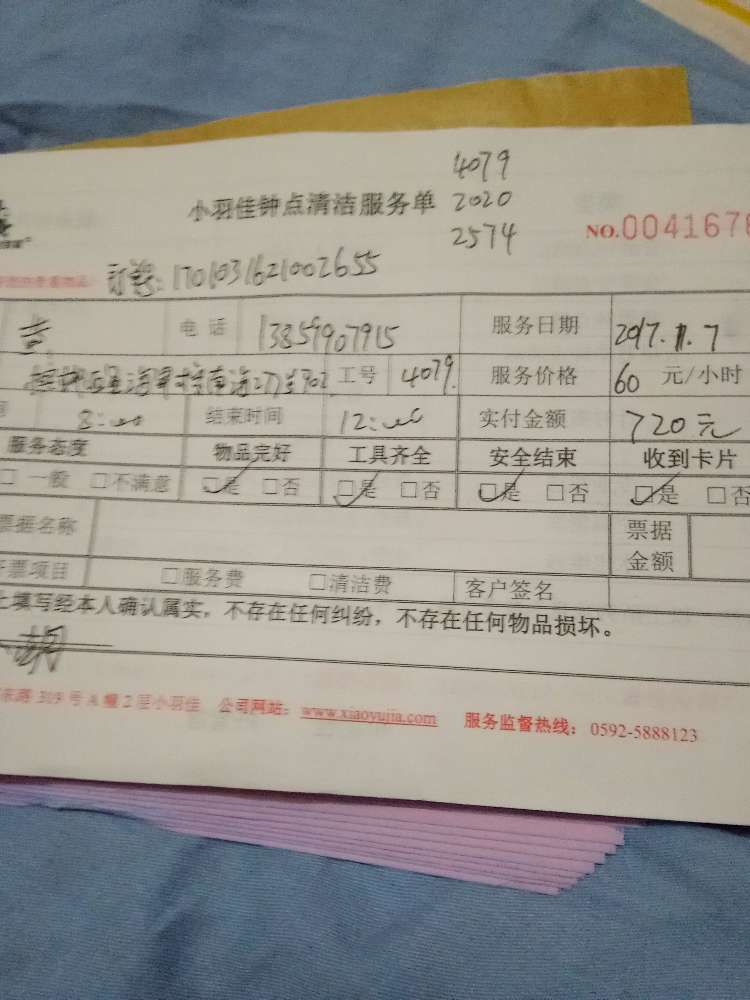 4079
小羽佳钟点清洁服务单 2020
2574
NO.0041678
订单: 1701031621002655
黄 电话 13859907915 服务日期 2017.11.7
工号 4079. 服务价格 60 元/小时
8:00 结束时间 12:00 实付金额 720元
服务态度 物品完好 工具齐全 安全结束 收到卡片
□一般 □不满意 ☑是 □否 ☑是 □否 ☑是 □否 ☑是 □否
票据名称 票据金额
开票项目 □服务费 □清洁费 客户签名
上填写经本人确认属实,不存在任何纠纷,不存在任何物品损坏。
东路 319 号 A 幢 2 层小羽佳 公司网站:www.xiaoyujia.com 服务监督热线:0592-5888123